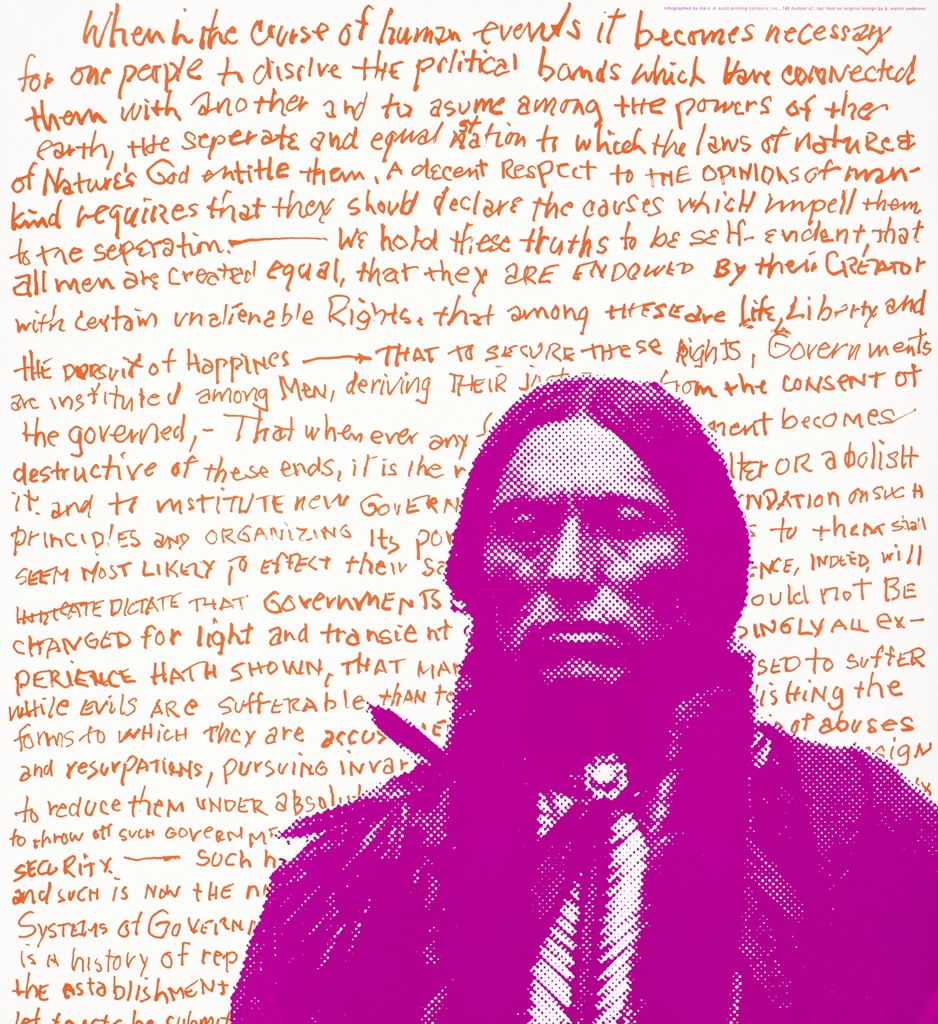 lithographed by the s. d. scott printing company, inc., 145 hudson st., nyc from an original design by b. martin pedersen
When in the course of human events it becomes necessary
for one people to disolve the political bonds which have connected
them with another and to asume among the powers of the
earth, the seperate and equal station to which the laws of nature &
of Nature's God entitle them, A decent Respect to the OPINIONS of man-
kind requires that they should declare the causes which impell them
to the seperation. — We hold these truths to be self-evident, that
all men are created equal, that they ARE ENDOWED By their CREATOR
with certain unalienable Rights, that among THESE are Life, Liberty and
the pursuit of Happines — THAT TO SECURE THESE Rights, Governments
are instituted among Men, deriving THEIR just from the CONSENT OF
the governed, - That when ever any ment becomes
destructive of these ends, it is the r lter OR abolish
it. and to INSTITUTE new GOVERN NDATION on SUCH
principles AND ORGANIZING Its pow s to them shall
SEEM MOST LIKELY TO EFFECT their sa ENCE, INDEED, will
DICTATE THAT GOVERNMENTS ould not BE
CHANGED for light and transient DINGLY ALL ex-
PERIENCE HATH SHOWN, THAT MAN SED to SUFFER
while EVILS ARE SUFFERABLE, than to lishing the
forms to which They are accus E of abuses
and resurpations, pursuing invar sign
to reduce them UNDER absolut
to throw off such GOVERNME
SECURITY. — Such h
and SUCH IS NOW THE n
SYSTEMS of GOVERN
is a history of rep
the establishment
let facts be submit